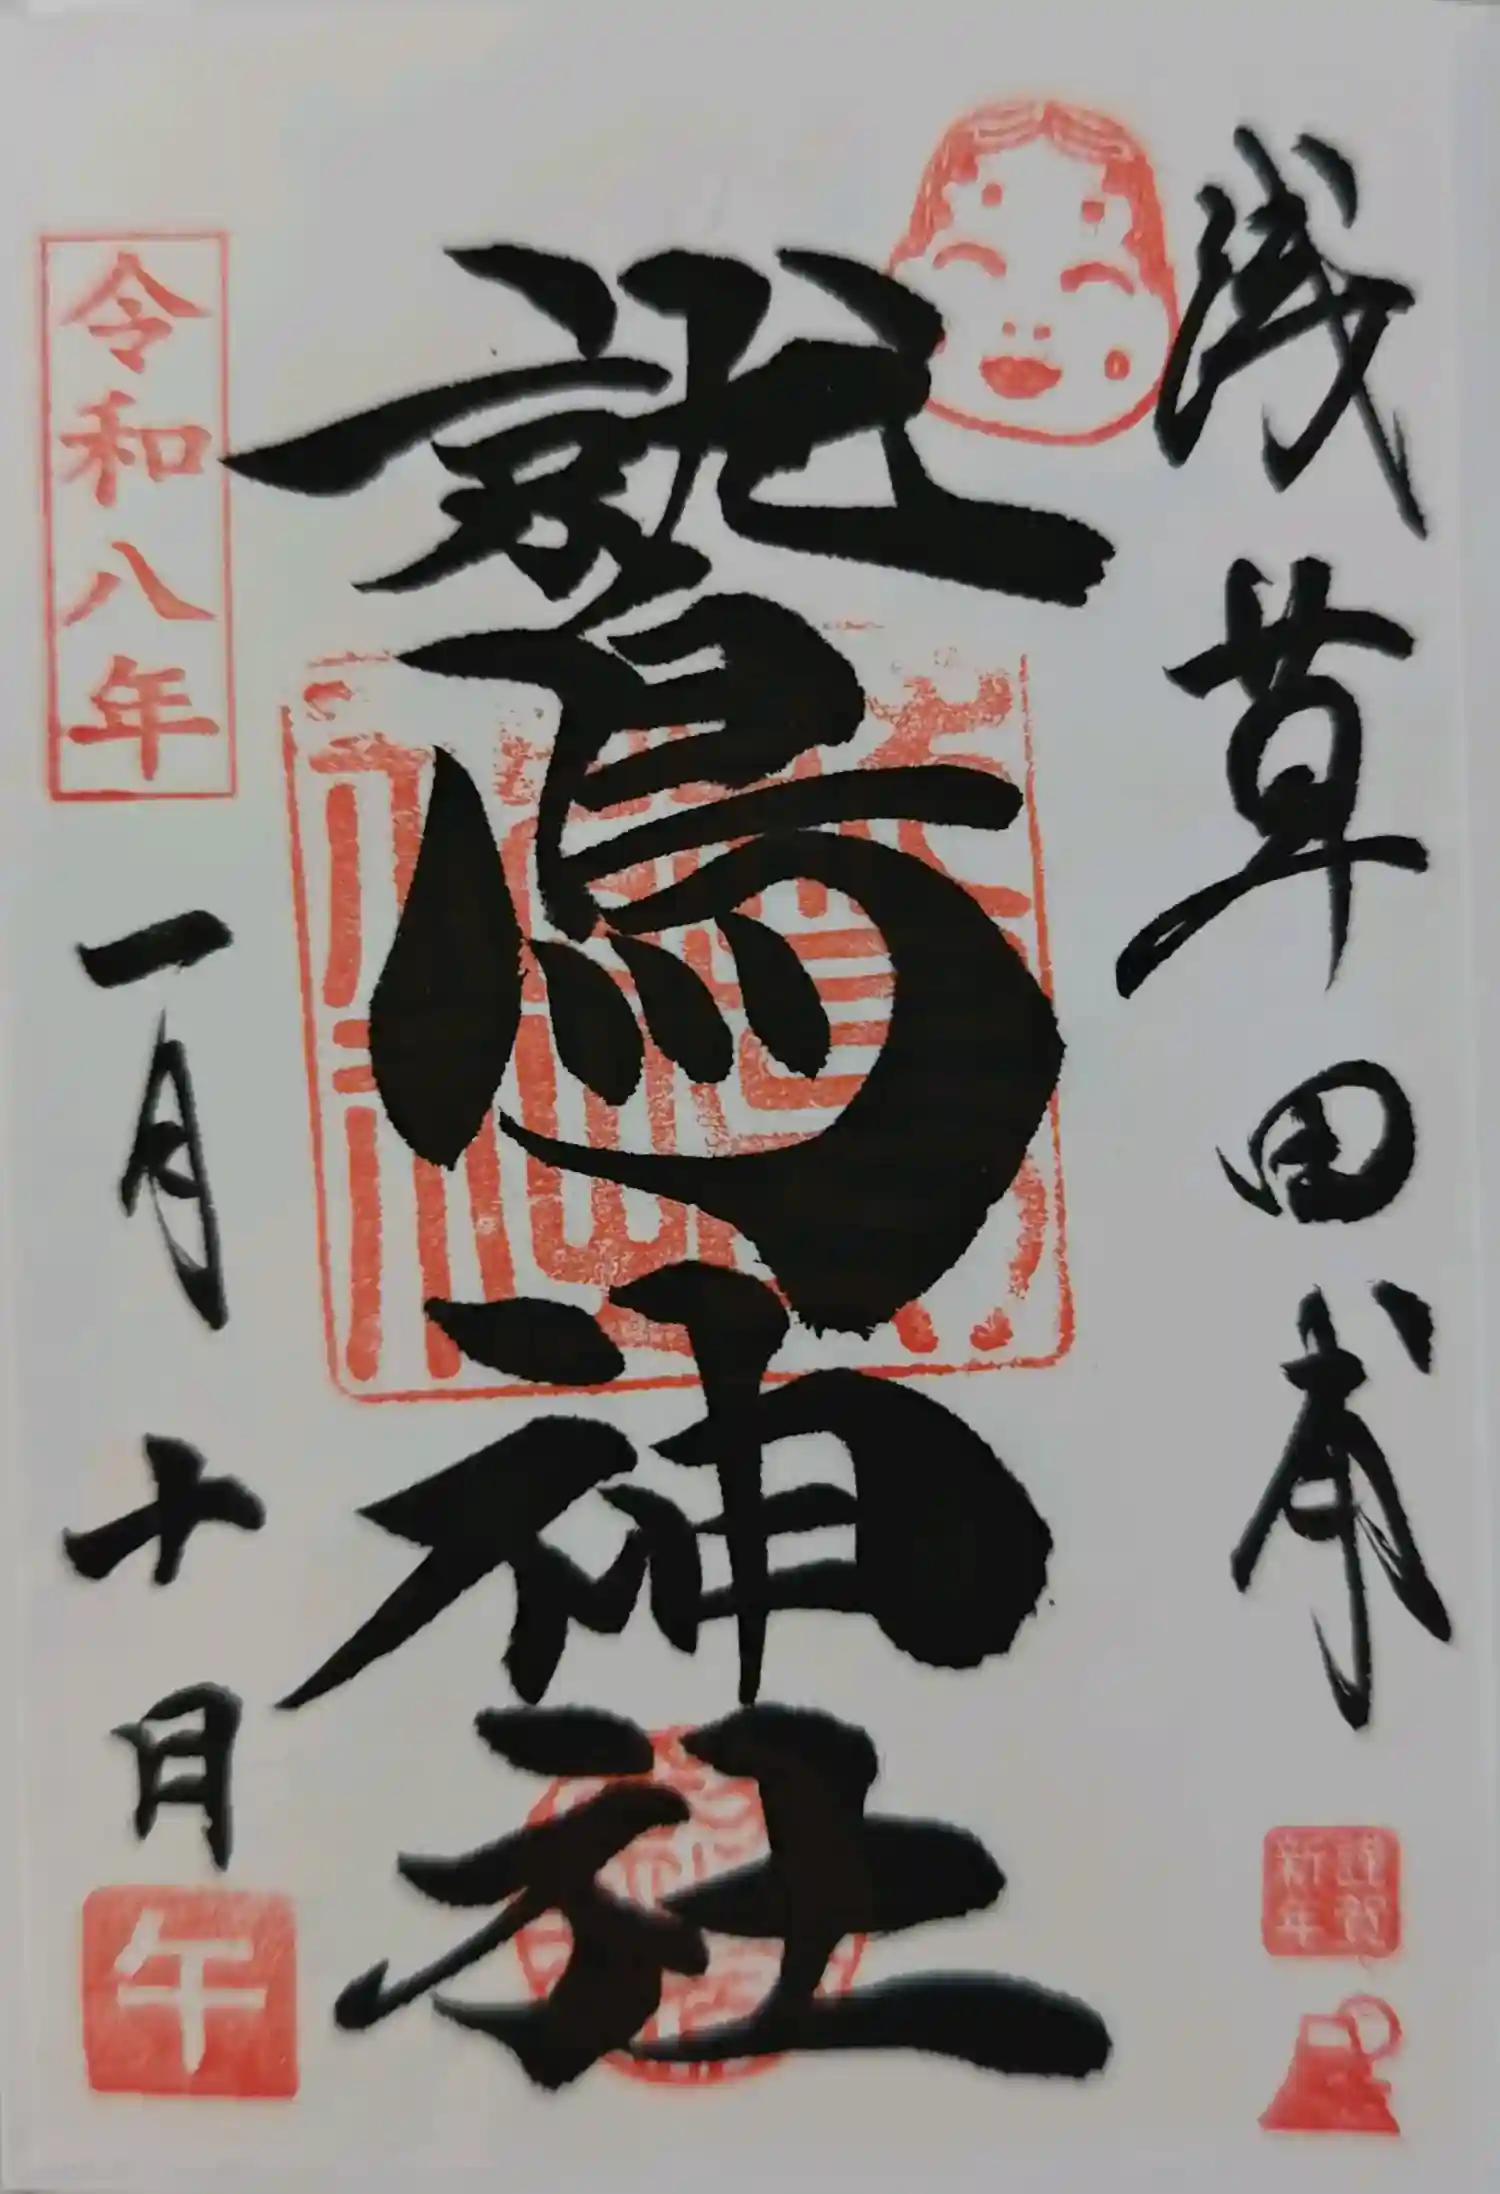 浅草田甫
鷲神社
令和八年
一月十日
午
謹賀
新年